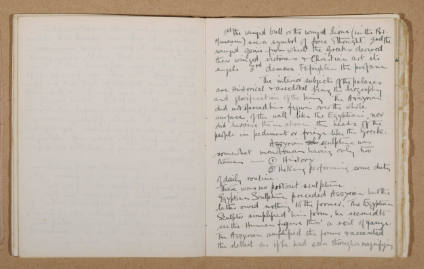 1st the winged bull or the winged lions (in the Brit.
Museum) are a symbol of force & thought. 2nd the
winged genii from which the Greeks derived
their winged victories & Christian art its
angels 3rd demons to the profane
The interior subjects of the palaces
are historical & anecdotal being the biography
and glorification of the King. The Assyrian
did not spread his figures over the whole
surface of the wall like the Egyptians, nor
did he raise them above the heads of the
people in pediment or frieze like the Greeks.
Assyrian sculpture was
somewhat monotonous having only two
themes — ① History
② Making performing some duty
of daily routine
There was no portrait sculpture
Egyptian Sculpture preceded Assyrian but the
latter owed nothing to the former. The Egyptian
Sculptor simplified his form, he seemed to
see the Human figure thro' a veil of gauze.
The Assyrian amplified the forms & accented
the detail as if he had seen through a magnifying